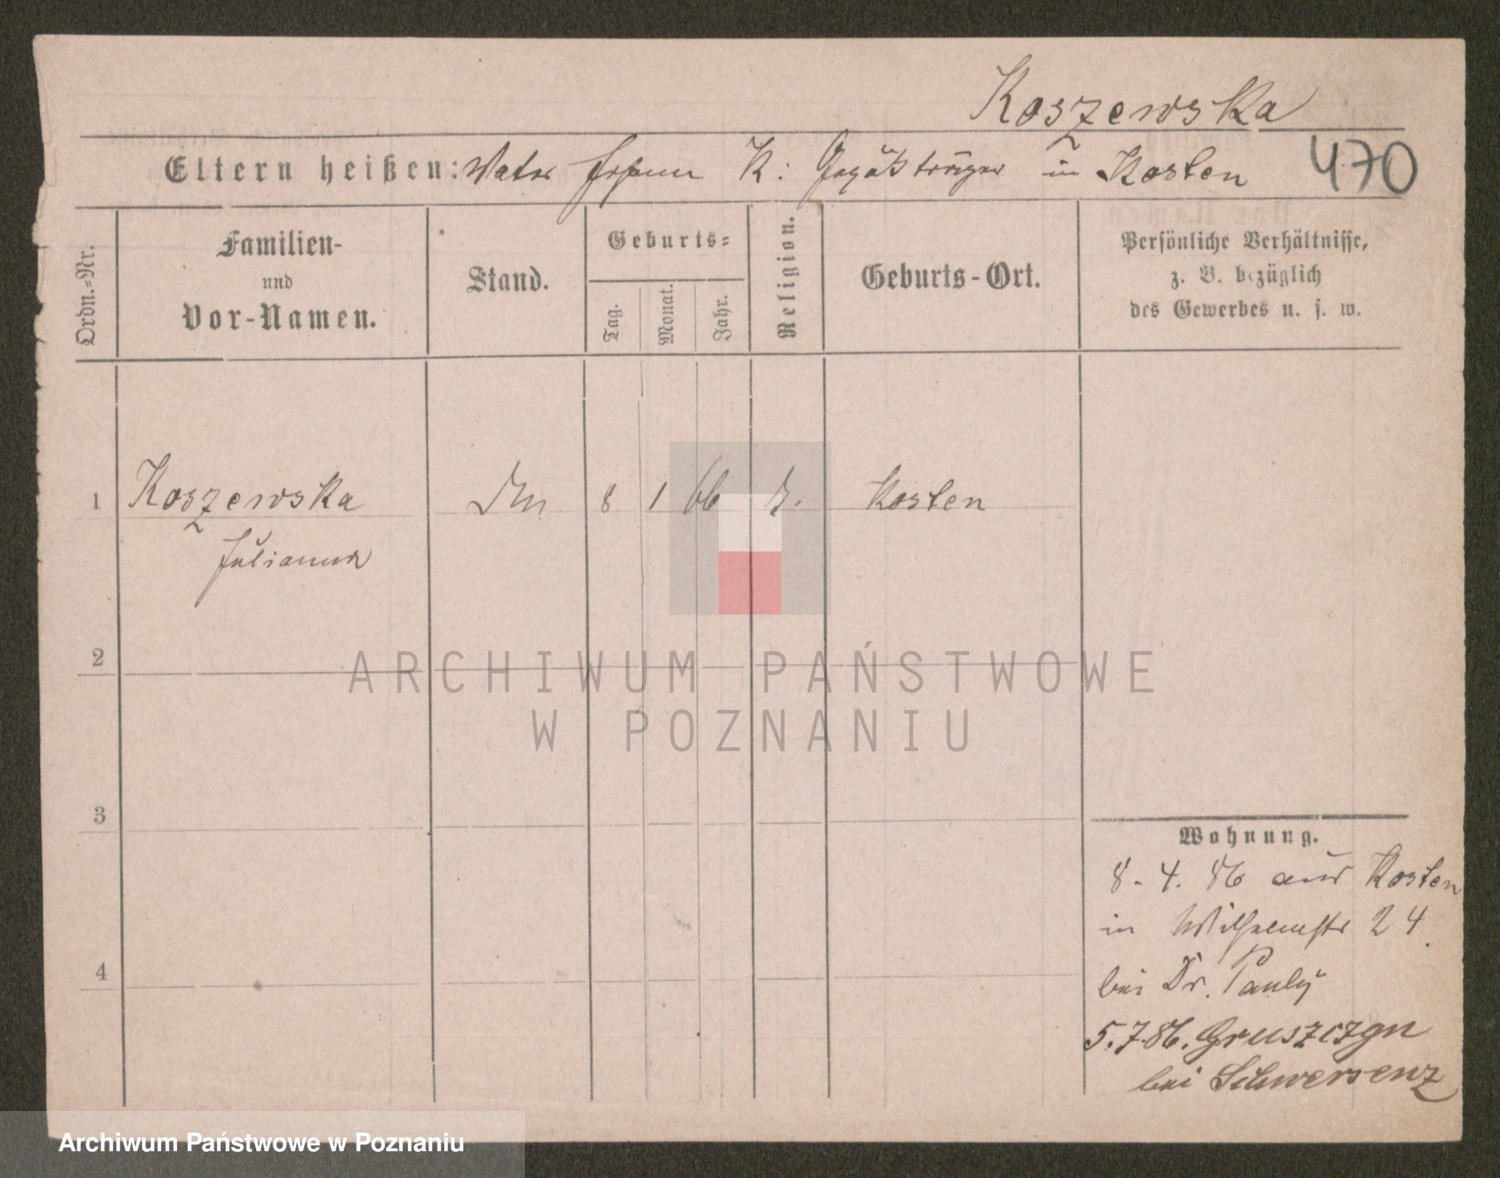 Koszewska
Eltern heißen: Vater Johann K: Gepäckträger in Kosten 470
Ordn.-Nr.
Familien-
und
Vor-Namen.
Stand.
Geburts-
Tag.
Monat.
Jahr.
Religion.
Geburts-Ort.
Persönliche Verhältnisse,
z. B. bezüglich
des Gewerbes u. s. w.
1 Koszewska 8 1 66 Kosten
Julianna
2
3
4
Wohnung.
8. 4. 86 aus Kosten
in Wilhelmstr 24.
bei Dr. Pauly
5.7.86. Gruszczyn
bei Schwersenz
ARCHIWUM PAŃSTWOWE
W POZNANIU
Archiwum Państwowe w Poznaniu